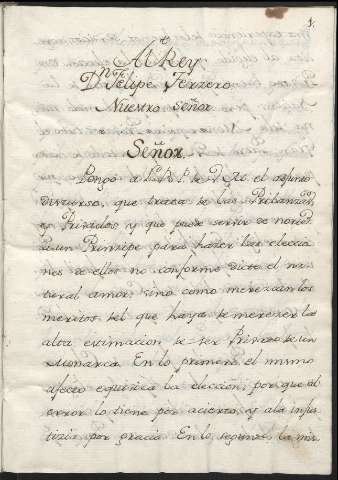 1.
Al Rey
Dn Felipe Terzero
Nuestro Señor
Señor
Pongo a los R. P. de V. M. el asunto
discurso, que trata de las Pribanzas,
y Pribados y que puede servir de norte
a un Prinsipe para hacer las eleccio
nes de ellos no conforme dicte el na
tural amor, sino como merezcan los
meritos del que haya de merezer la
alta estimacion de ser Pribado de un
Monarca. En lo primero el mismo
afecto equiboca la eleccion, por que al
error lo tiene por acierto, y a la injus
tizia por gracia. En lo segundo, la mis